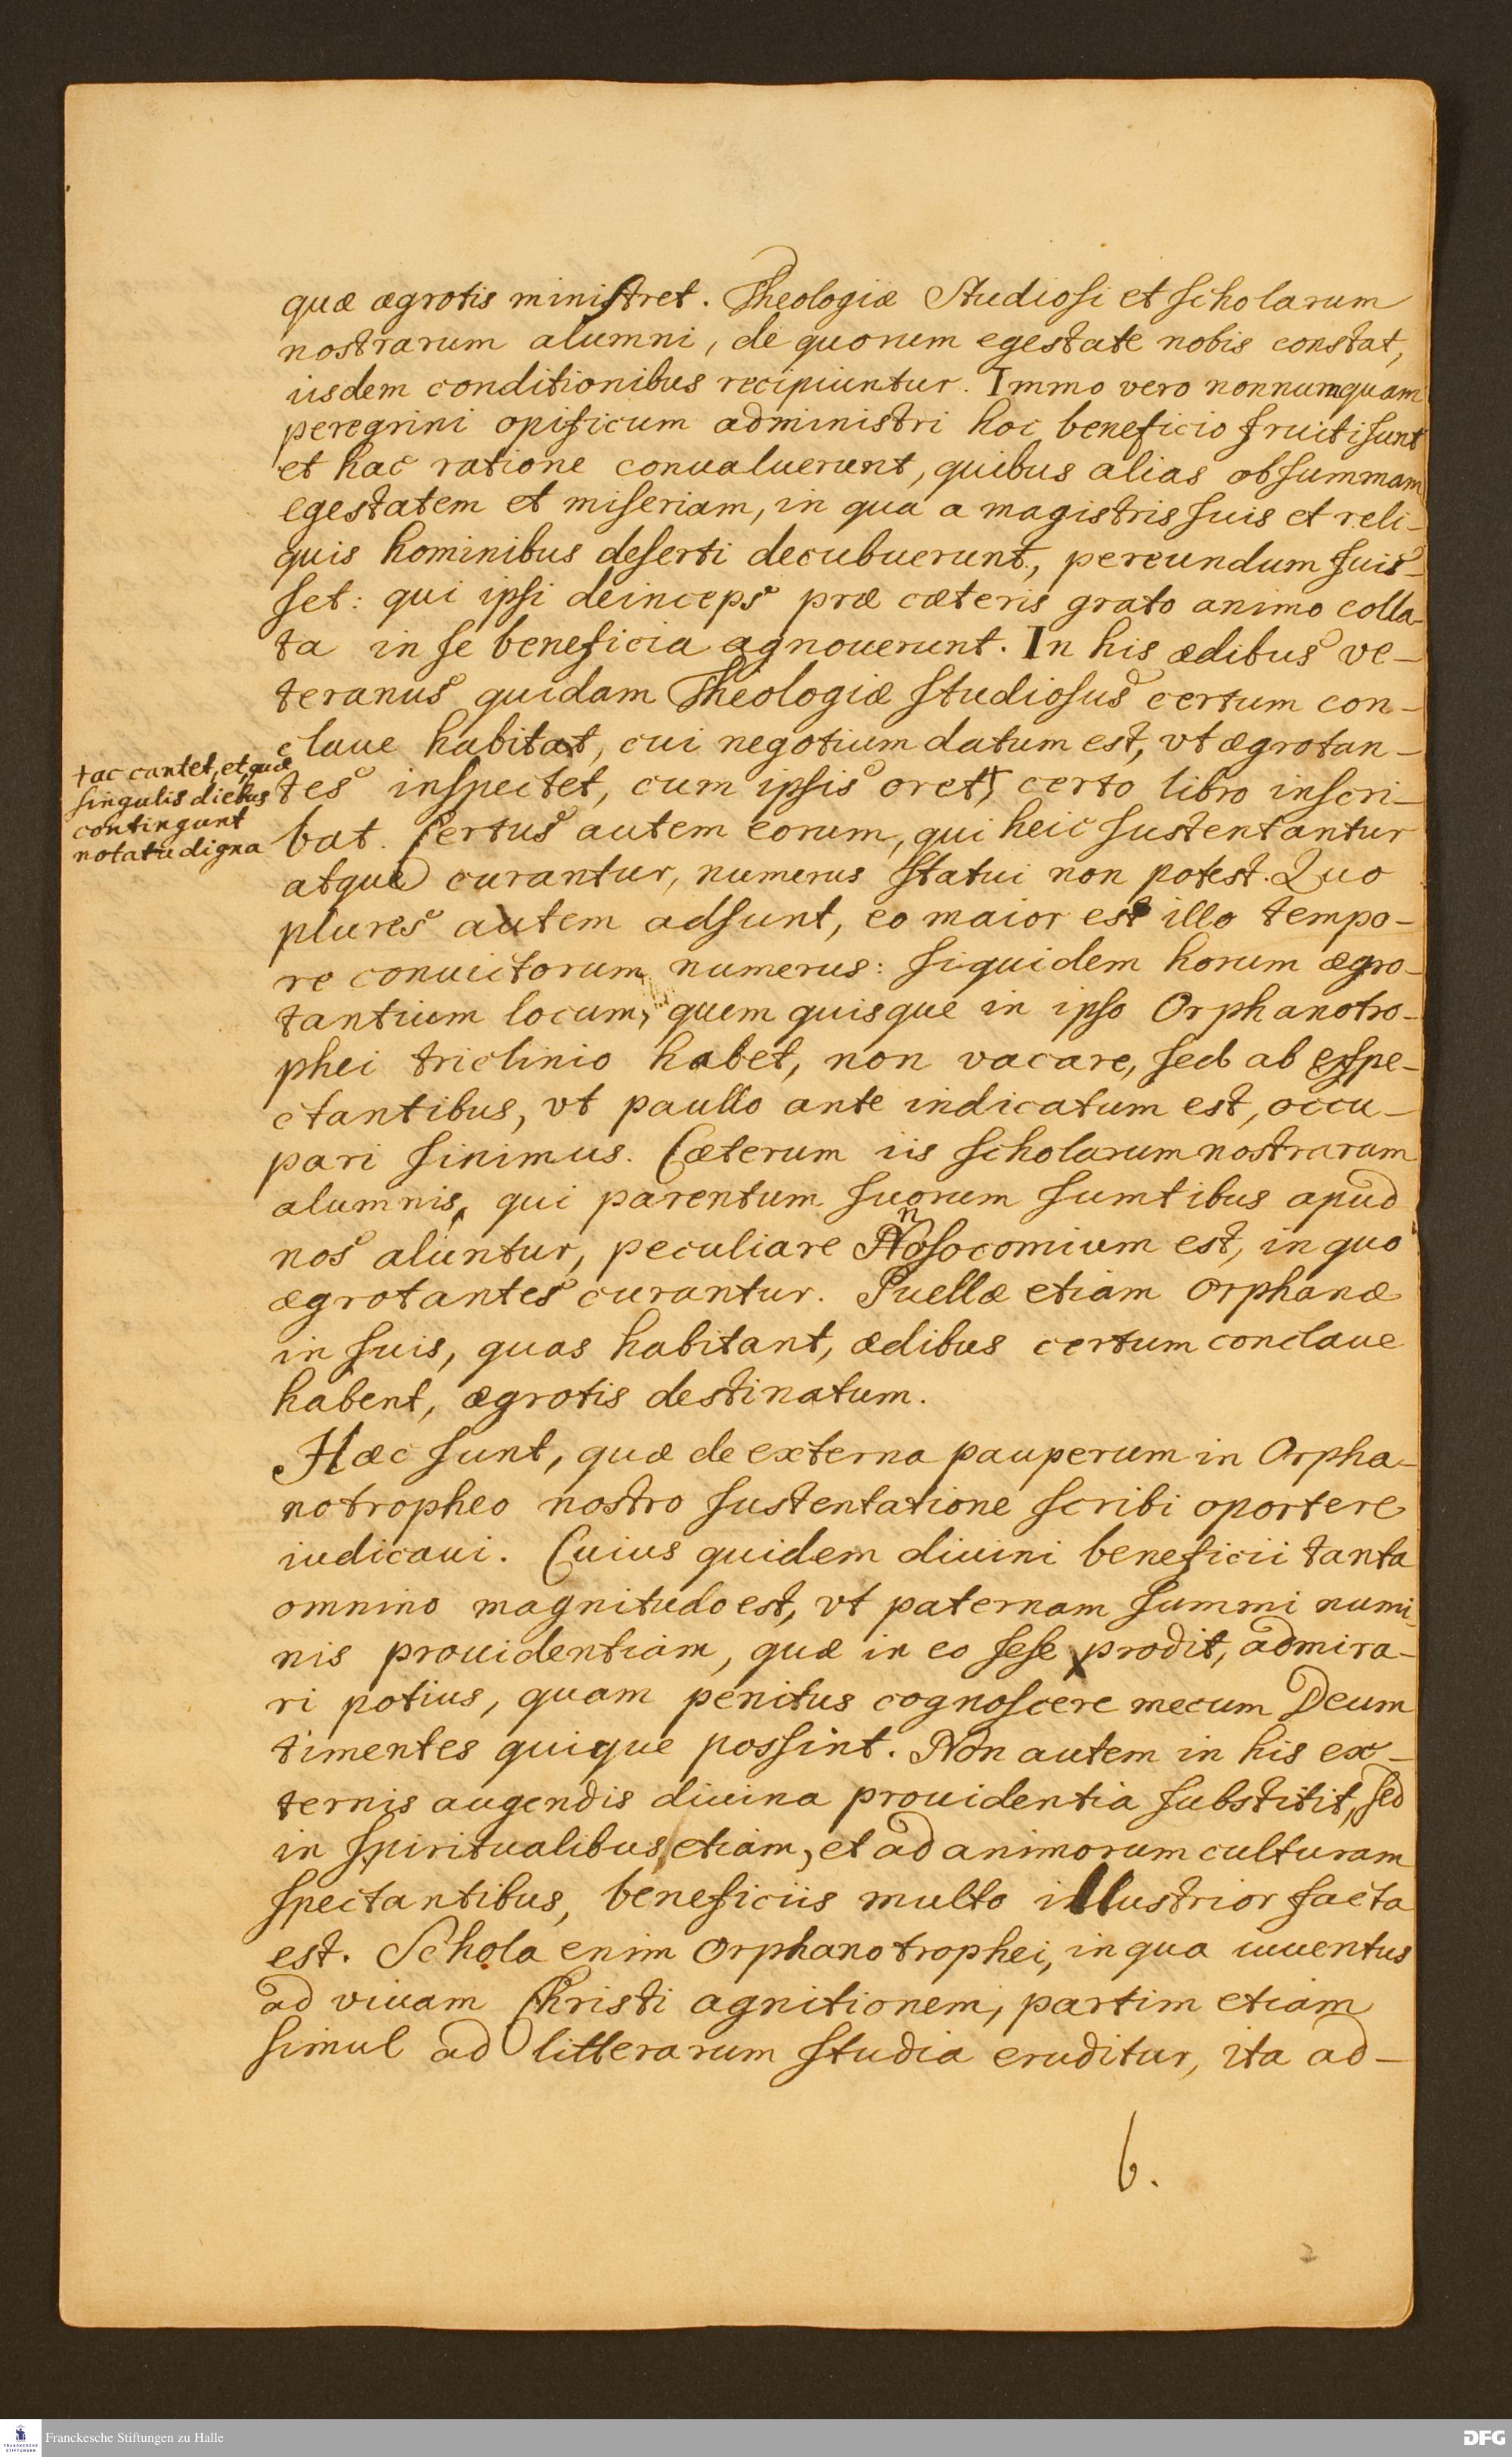 quæ ægrotis ministret. Theologiæ Studiosi et scholarum
nostrarum alumni, de quorum egestate nobis constat,
iisdem conditionibus recipiuntur. Immo vero nonnumquam
peregrini opificum administri hoc beneficio fruiti sunt
et hac ratione conualuerunt, quibus alias ob summam
egestatem et miseriam, in qua a magistris suis et reli-
quis hominibus deserti decubuerunt, pereundum fuis-
set: qui ipsi deinceps præ cæteris grato animo colla-
ta in se beneficia agnouerunt. In his ædibus ve-
teranus quidam Theologiæ studiosus certum con-
claue habitat, cui negotium datum est, vt ægrotan-
tes inspectet, cum ipsis oret†, certo libro inscri-
†ac cantet, et quæ
singulis diebus
contingunt
notatu digna
bat. Certus autem eorum, qui heic sustentantur
atque curantur, numerus statui non potest. Quo
plures autem adsunt, eo maior est illo tempo-
re conuictorum numerus: siquidem horum ægro-
tantium locum, quem quisque in ipso Orphanotro-
phei triclinio habet, non vacare, sed ab exspe-
ctantibus, vt paullo ante indicatum est, occu-
pari sinimus. Cæterum iis scholarum nostrarum
alumnis, qui parentum suorum sumtibus apud
nos aluntur, peculiare nosocomium est, in quo
ægrotantes curantur. Puellæ etiam orphanæ
in suis, quas habitant, ædibus certum conclaue
habent, ægrotis destinatum.
Hæc sunt, quæ de externa pauperum in Orpha-
notropheo nostro sustentatione scribi oportere
iudicaui. Cuius quidem diuini beneficii tanta
omnino magnitudo est, vt paternam summi numi-
nis prouidentiam, quæ in eo sese prodit, admira-
ri potius, quam penitus cognoscere mecum Deum
timentes quique possint. Non autem in his ex-
ternis augendis diuina prouidentia substitit, sed
in spiritualibus etiam, et ad animorum culturam
spectantibus, beneficiis multo illustrior facta
est. Schola enim Orphanotrophei, in qua iuuentus
ad viuam Christi agnitionem, partim etiam
simul ad litterarum studia eruditur, ita ad-
6.
2
Franckesche Stiftungen zu Halle
FRANCKESCHE
STIFTUNGEN
DFG